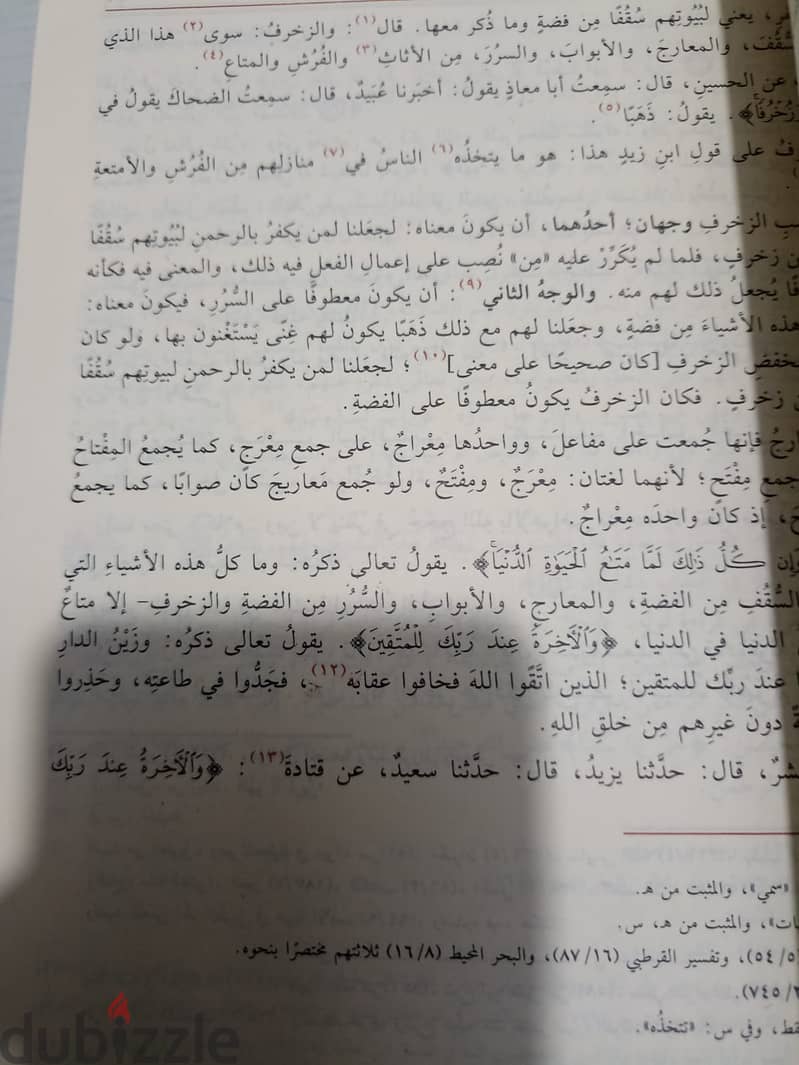 يعني لبُيُوتِهم سُقُفًا مِن فضةٍ وما ذُكر معها. قال(١): والزخرفُ: سوى(٢) هذا الذي
والمعارجَ، والأبوابَ، والسررَ، مِن الأثاثِ(٣) والفُرُشِ والمتاعِ(٤).
عن الحسينِ، قال: سمِعتُ أبا معاذٍ يقولُ: أخبَرنا عُبَيدٌ، قال: سمِعتُ الضحاكَ يقولُ في
﴾. يقولُ: ذَهَبًا(٥).
على قولِ ابنِ زيدٍ هذا: هو ما يتخِذُه(٦) الناسُ في(٧) منازلِهم مِن الفُرُشِ والأمتعةِ
الزخرفِ وجهان؛ أحدُهما، أن يكونَ معناه: لجعَلنا لمن يكفرُ بالرحمنِ لبُيُوتِهم سُقُفًا
زخرفٍ، فلما لم يُكَرِّرْ عليه «مِن» نُصِب على إعمالِ الفعلِ فيه ذلك، والمعنى فيه فكأنه
يُجعلُ ذلك لهم منه. والوجهُ الثاني(٩): أن يكونَ معطوفًا على السُّرُرِ، فيكونَ معناه:
هذه الأشياءَ مِن فضةٍ، وجعَلنا لهم مع ذلك ذَهَبًا يكونُ لهم غِنًى يَسْتَغْنون بها، ولو كان
الزخرفِ [كان صحيحًا على معنى](١٠)؛ لجعَلنا لمن يكفرُ بالرحمنِ لبيوتِهم سُقُفًا
زخرفٍ. فكان الزخرفُ يكونُ معطوفًا على الفضةِ.
فإنها جُمعت على مفاعلَ، وواحدُها مِعْراجٌ، على جمعِ مِعْرَجٍ، كما يُجمعُ المِفْتاحُ
مِفْتَحٍ؛ لأنهما لغتان: مِعْرَجٌ، ومِفْتَحٌ، ولو جُمع مَعاريجَ كان صوابًا، كما يجمعُ
إذ كان واحدَه مِعْراجٌ.
كُلُّ ذَٰلِكَ لَمَّا مَتَٰعُ ٱلْحَيَوٰةِ ٱلدُّنْيَا﴾. يقولُ تعالى ذكرُه: وما كلُّ هذه الأشياءِ التي
السُّقُفِ مِن الفضةِ، والمعارجِ، والأبوابِ، والسُّرُرِ مِن الفضةِ والزخرفِ- إلا متاعُ
الدنيا في الدنيا، ﴿وَٱلْأَخِرَةُ عِندَ رَبِّكَ لِلْمُتَّقِينَ﴾. يقولُ تعالى ذكرُه: وزَيْنُ الدارِ
عندَ ربِّك للمتقين؛ الذين اتَّقَوا اللهَ فخافوا عقابَه(١٢)، فجَدُّوا في طاعتِه، وحَذِروا
دونَ غيرِهم مِن خلقِ اللهِ.
قال: حدَّثنا يزيدُ، قال: حدَّثنا سعيدٌ، عن قتادةَ(١٣): ﴿وَٱلْأَخِرَةُ عِندَ رَبِّكَ
«سمي»، والمثبت من هـ.
والمثبت من هـ، س.
٥٤)، وتفسير القرطبي (١٦/ ٨٧)، والبحر المحيط (٨/ ١٦) ثلاثتهم مختصرًا بنحوه.
٧٤٥).
وفي س: «تتخذه».
dubizzle